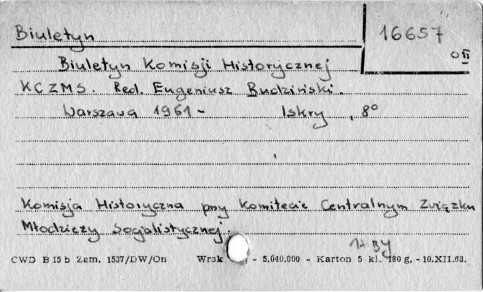 Biuletyn
16657
OII
Biuletyn Komisji Historycznej
KCZMS. Red. Eugeniusz Budziński.
Warszawa 1961 - Iskry, 8°
Komisja Historyczna przy Komitecie Centralnym Związku
Młodzieży Socjalistycznej.
CWD B 15 b Zam. 1537/DW/On Wrak - 5,040.000 - Karton 5 kl. 180 g, - 10.XII.63.